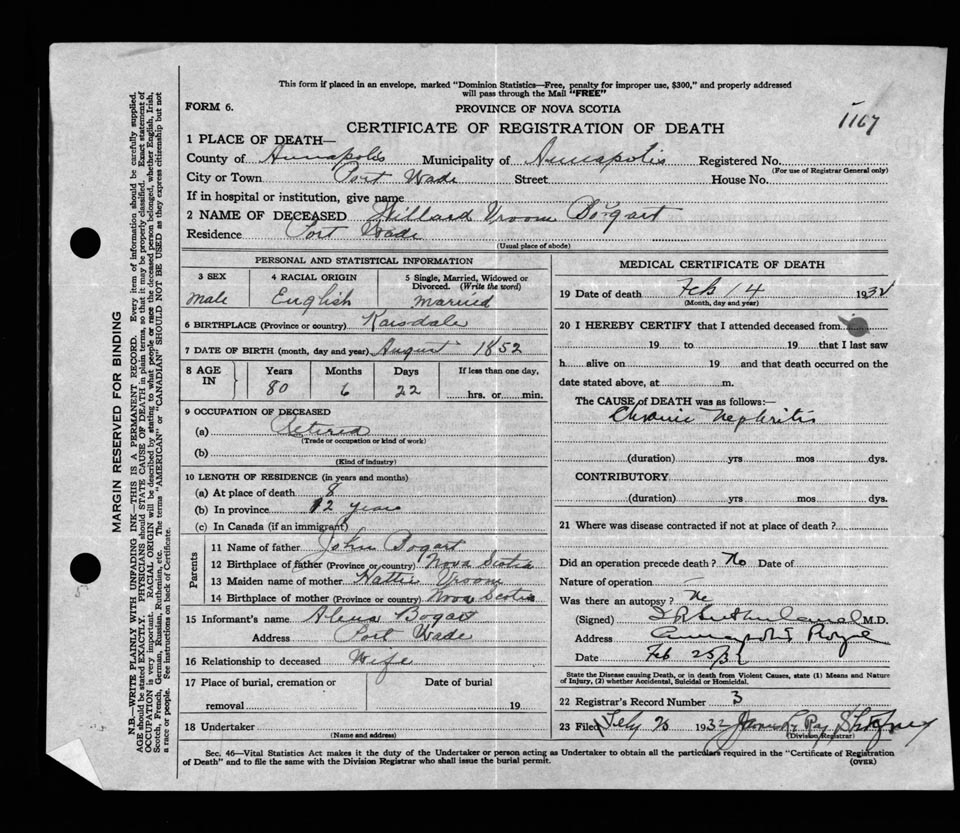 This form if placed in an envelope, marked "Dominion Statistics—Free, penalty for improper use, $300," and properly addressed
will pass through the Mail "FREE"
FORM 6.
PROVINCE OF NOVA SCOTIA
1167
CERTIFICATE OF REGISTRATION OF DEATH
1 PLACE OF DEATH—
County of Annapolis Municipality of Annapolis Registered No.
(For use of Registrar General only)
City or Town Port Wade Street House No.
If in hospital or institution, give name
2 NAME OF DECEASED Willard Vroom Bogart
Residence Port Wade
(Usual place of abode)
PERSONAL AND STATISTICAL INFORMATION
3 SEX 4 RACIAL ORIGIN 5 Single, Married, Widowed or
Divorced. (Write the word)
Male English Married
6 BIRTHPLACE (Province or country) Karsdale
7 DATE OF BIRTH (month, day and year) August 1852
8 AGE IN Years Months Days If less than one day,
80 6 22 hrs. or min.
9 OCCUPATION OF DECEASED
(a) Retired
(Trade or occupation or kind of work)
(b)
(Kind of industry)
10 LENGTH OF RESIDENCE (in years and months)
(a) At place of death 8
(b) In province 12 years
(c) In Canada (if an immigrant)
Parents
11 Name of father John Bogart
12 Birthplace of father (Province or country) Nova Scotia
13 Maiden name of mother Hattie Vroom
14 Birthplace of mother (Province or country) Nova Scotia
15 Informant's name Alena Bogart
Address Port Wade
16 Relationship to deceased Wife
17 Place of burial, cremation or Date of burial
removal 19
18 Undertaker
(Name and address)
MEDICAL CERTIFICATE OF DEATH
19 Date of death Feb 14 1932
(Month, day and year)
20 I HEREBY CERTIFY that I attended deceased from
19 to 19 that I last saw
h alive on 19 and that death occurred on the
date stated above, at m.
The CAUSE of DEATH was as follows:
Chronic Nephritis
(duration) yrs mos dys.
CONTRIBUTORY
(duration) yrs mos dys.
21 Where was disease contracted if not at place of death?
Did an operation precede death? No Date of
Nature of operation
Was there an autopsy? No
(Signed) M.D.
Address Annapolis Royal
Date Feb 25/32
State the Disease causing Death, or in death from Violent Causes, state (1) Means and Nature
of Injury, (2) whether Accidental, Suicidal or Homicidal.
22 Registrar's Record Number 3
23 Filed 1932
(Division Registrar)
Sec. 46—Vital Statistics Act makes it the duty of the Undertaker or person acting as Undertaker to obtain all the particulars required in the "Certificate of Registration
of Death" and to file the same with the Division Registrar who shall issue the burial permit.
(OVER)
MARGIN RESERVED FOR BINDING
N.B.—WRITE PLAINLY WITH UNFADING INK—THIS IS A PERMANENT RECORD. Every item of information should be carefully supplied.
AGE should be stated EXACTLY. PHYSICIANS should STATE CAUSE OF DEATH in plain terms, so that it may be properly classified. Exact statement of
OCCUPATION is very important. RACIAL ORIGIN will be described by stating to what people or race the deceased person belonged, whether English, Irish,
Scotch, French, German, Russian, Ruthenian, etc. The terms "AMERICAN" or "CANADIAN" SHOULD NOT BE USED as they express citizenship but not
a race or people. See instructions on back of Certificate.